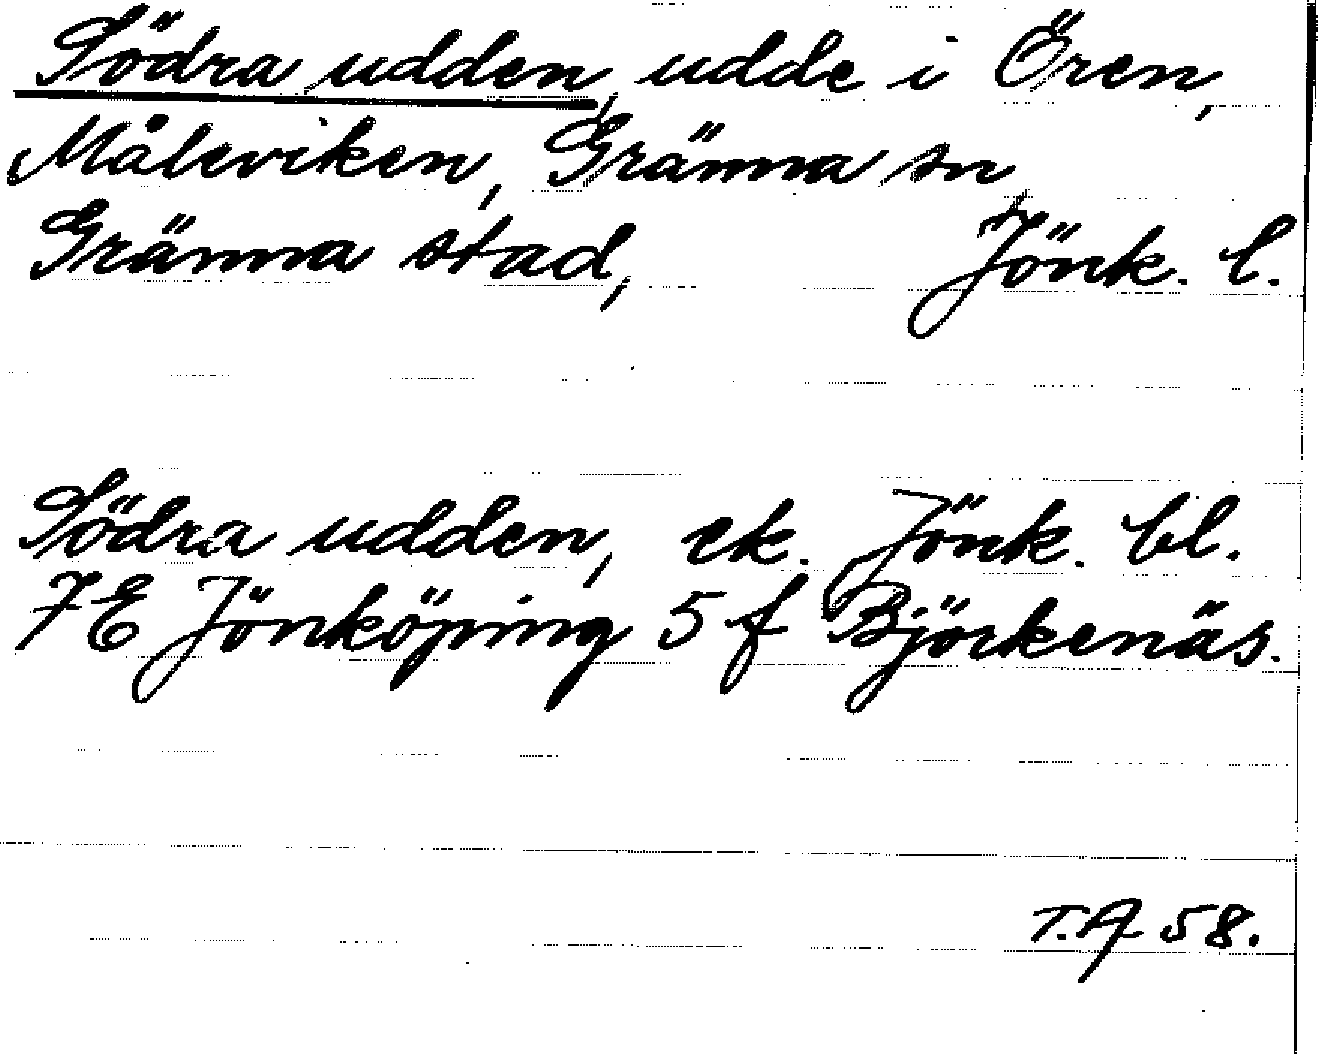 Södra udden, udde i Ören,
Måleviken, Gränna sn,
Gränna stad, Jönk. l.
Södra udden, ek. Jönk. bl.
7E Jönköping 5 f Björkenäs.
T.A 58.